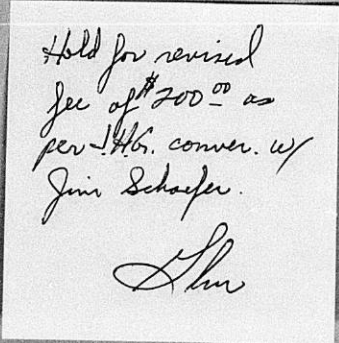 Hold for revised
fee of $200.00 as
per J.H.G. conver. w/
Jim Schaefer.